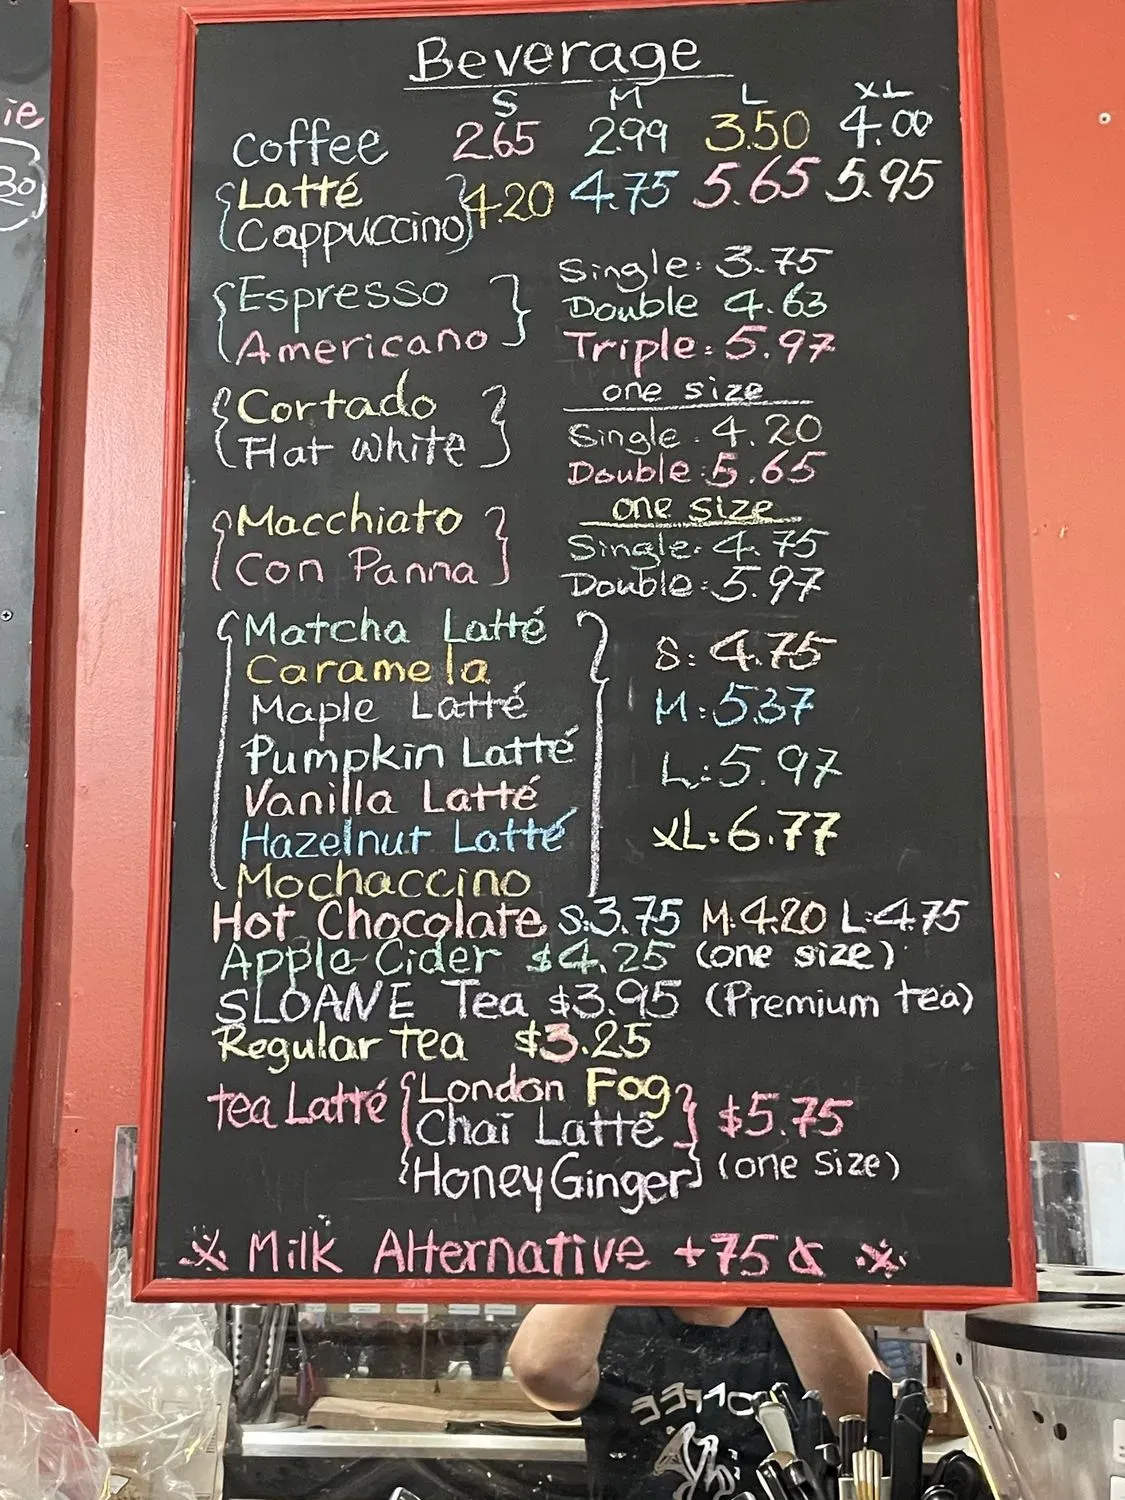 ie
30
Beverage
S M L XL
Coffee 2.65 2.99 3.50 4.00
Latté
Cappuccino 4.20 4.75 5.65 5.95
Espresso
Americano
Single: 3.75
Double 4.63
Triple: 5.97
Cortado
Flat White
one size
Single: 4.20
Double: 5.65
Macchiato
Con Panna
one size
Single: 4.75
Double: 5.97
Matcha Latté
Caramela
Maple Latté
Pumpkin Latté
Vanilla Latté
Hazelnut Latté
Mochaccino
S: 4.75
M: 5.37
L: 5.97
XL: 6.77
Hot Chocolate S: 3.75 M: 4.20 L: 4.75
Apple Cider $4.25 (one size)
SLOANE Tea $3.95 (Premium tea)
Regular tea $3.25
tea Latté
London Fog
Chaï Latté
Honey Ginger
$5.75
(one size)
Milk Alternative +75¢